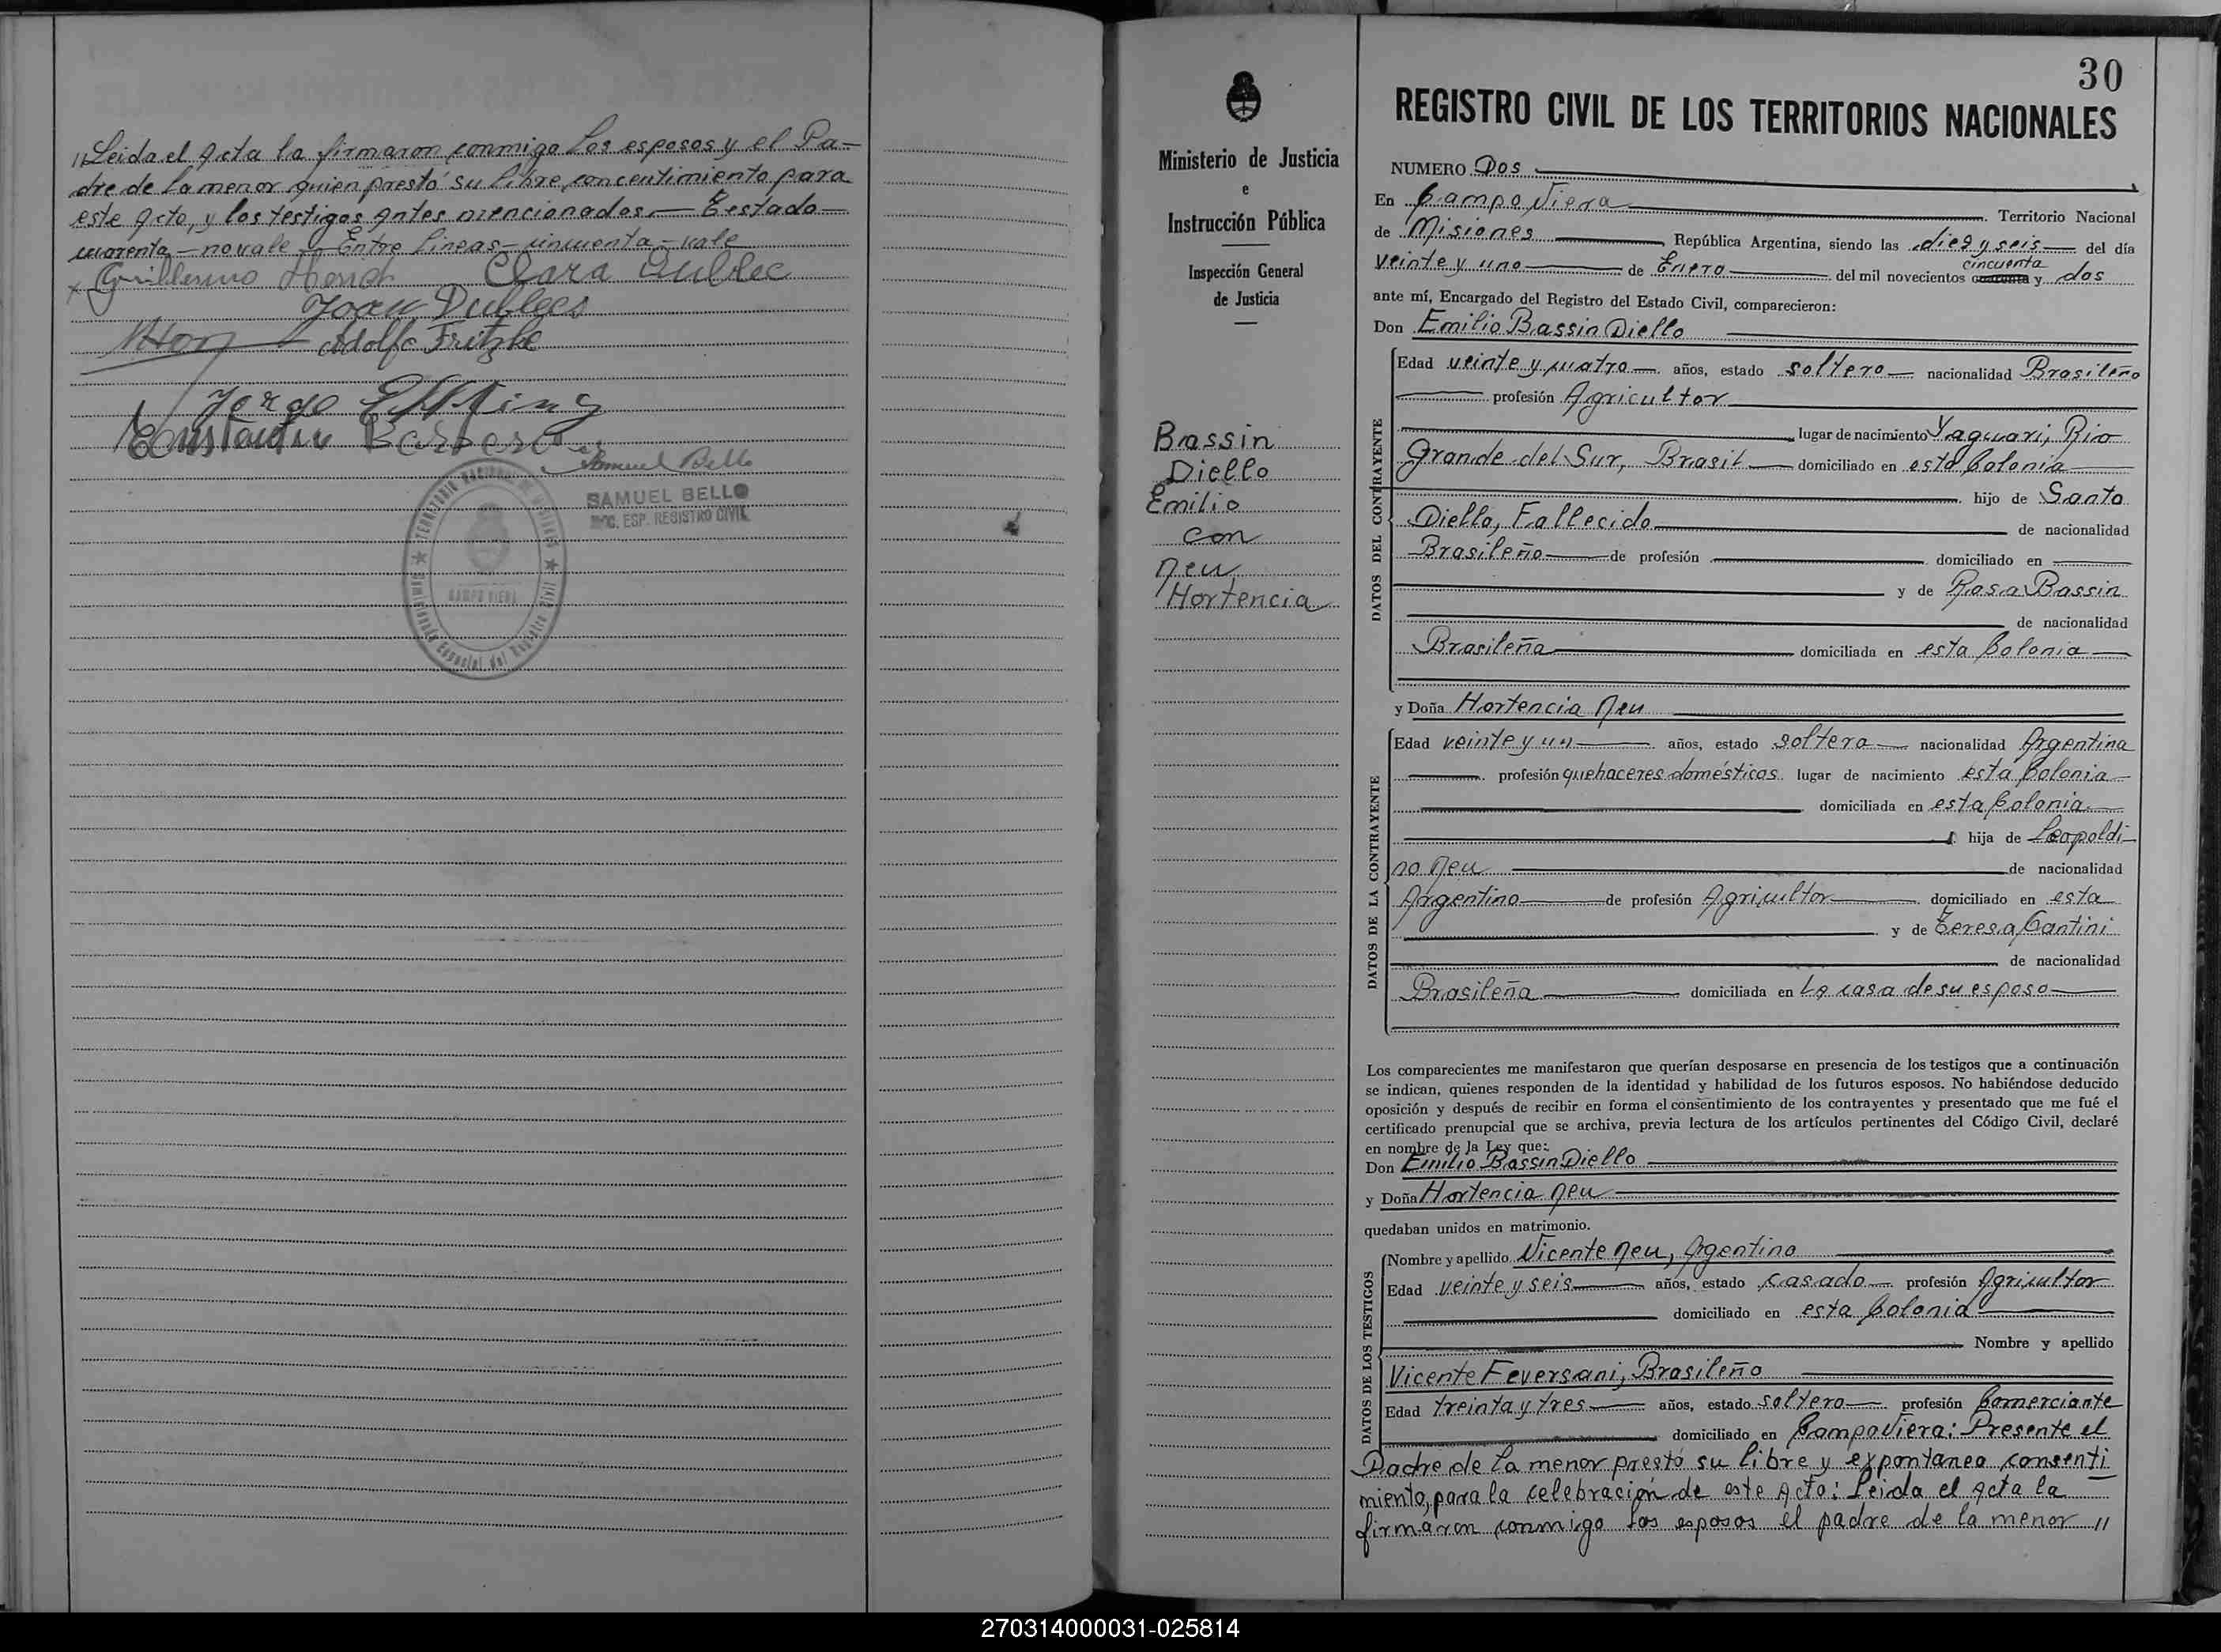 "Leida el Acta la firmaron conmigo los esposos y el Pa-
dre de la menor quien prestó su libre concentimiento para
este Acto, y los testigos antes mencionados.— Testado—
cuarenta — no vale — Entre líneas — cincuenta — vale
Guillermo Clara
Adolfo Fritzke
Jorge
Samuel Bello
SAMUEL BELLO
ENC. ESP. REGISTRO CIVIL
CAMPO VIERA
30
Ministerio de Justicia
e
Instrucción Pública
Inspección General
de Justicia
Bassin
Diello
Emilio
con
Neu
Hortencia
REGISTRO CIVIL DE LOS TERRITORIOS NACIONALES
NUMERO Dos
En Campo Viera Territorio Nacional
de Misiones, República Argentina, siendo las diez y seis del día
veinte y uno de Enero del mil novecientos cuarenta cincuenta y dos
ante mí, Encargado del Registro del Estado Civil, comparecieron:
Don Emilio Bassin Diello
DATOS DEL CONTRAYENTE
Edad veinte y cuatro años, estado soltero nacionalidad Brasileño
profesión Agricultor
lugar de nacimiento Yaguari, Rio
Grande del Sur, Brasil domiciliado en esta Colonia
hijo de Santo
Diello, Fallecido de nacionalidad
Brasileño de profesión domiciliado en
y de Rosa Bassin
de nacionalidad
Brasileña domiciliada en esta Colonia
y Doña Hortencia Neu
DATOS DE LA CONTRAYENTE
Edad veinte y un años, estado soltera nacionalidad Argentina
profesión quehaceres domésticos lugar de nacimiento esta Colonia
domiciliada en esta Colonia
hija de Leopoldi-
no Neu de nacionalidad
Argentino de profesión Agricultor domiciliado en esta
y de Teresa Cantini
de nacionalidad
Brasileña domiciliada en la casa de su esposo
Los comparecientes me manifestaron que querían desposarse en presencia de los testigos que a continuación
se indican, quienes responden de la identidad y habilidad de los futuros esposos. No habiéndose deducido
oposición y después de recibir en forma el consentimiento de los contrayentes y presentado que me fué el
certificado prenupcial que se archiva, previa lectura de los artículos pertinentes del Código Civil, declaré
en nombre de la Ley que:
Don Emilio Bassin Diello
y Doña Hortencia Neu
quedaban unidos en matrimonio.
DATOS DE LOS TESTIGOS
Nombre y apellido Vicente Neu, Argentino
Edad veinte y seis años, estado casado profesión Agricultor
domiciliado en esta Colonia
Nombre y apellido
Vicente Feversani, Brasileño
Edad treinta y tres años, estado soltero profesión Comerciante
domiciliado en Campo Viera: Presente el
Padre de la menor prestó su libre y expontaneo consenti
miento, para la celebración de este Acto: Leida el Acta la
firmaron conmigo los esposos el padre de la menor "
270314000031-025814